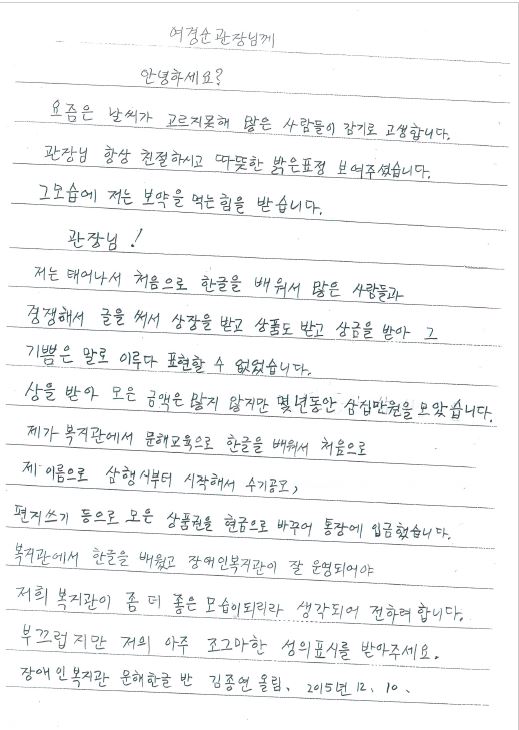 여경순관장님께
안녕하세요?
요즘은 날씨가 고르지못해 많은 사람들이 감기로 고생합니다.
관장님 항상 친절하시고 따뜻한 밝은표정 보여주셨습니다.
그모습에 저는 보약을 먹는힘을 받습니다.
관장님!
저는 태어나서 처음으로 한글을 배워서 많은 사람들과
경쟁해서 글을 써서 상장을 받고 상품도 받고 상금을 받아 그
기쁨은 말로 이루다 표현할 수 없었습니다.
상을 받아 모은 금액은 많지 않지만 몇년동안 삼십만원을 모았습니다.
제가 복지관에서 문해교육으로 한글을 배워서 처음으로
제 이름으로 삼행시부터 시작해서 수기공모,
편지쓰기 등으로 모은 상품권을 현금으로 바꾸어 통장에 입금했습니다.
복지관에서 한글을 배웠고 장애인복지관이 잘 운영되어야
저희 복지관이 좀 더 좋은 모습이되리라 생각되어 전하려합니다.
부끄럽지만 저의 아주 조그마한 성의표시를 받아주세요.
장애인복지관 문해한글 반 김종연 올림. 2015년 12. 10.